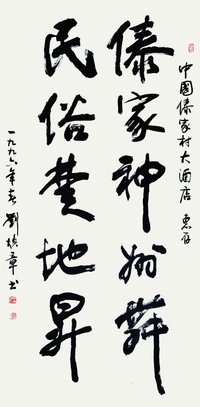 中國傣家村大酒店 惠存
傣家神州舞
民俗楚地昇
一九九六年春 劉煥章书